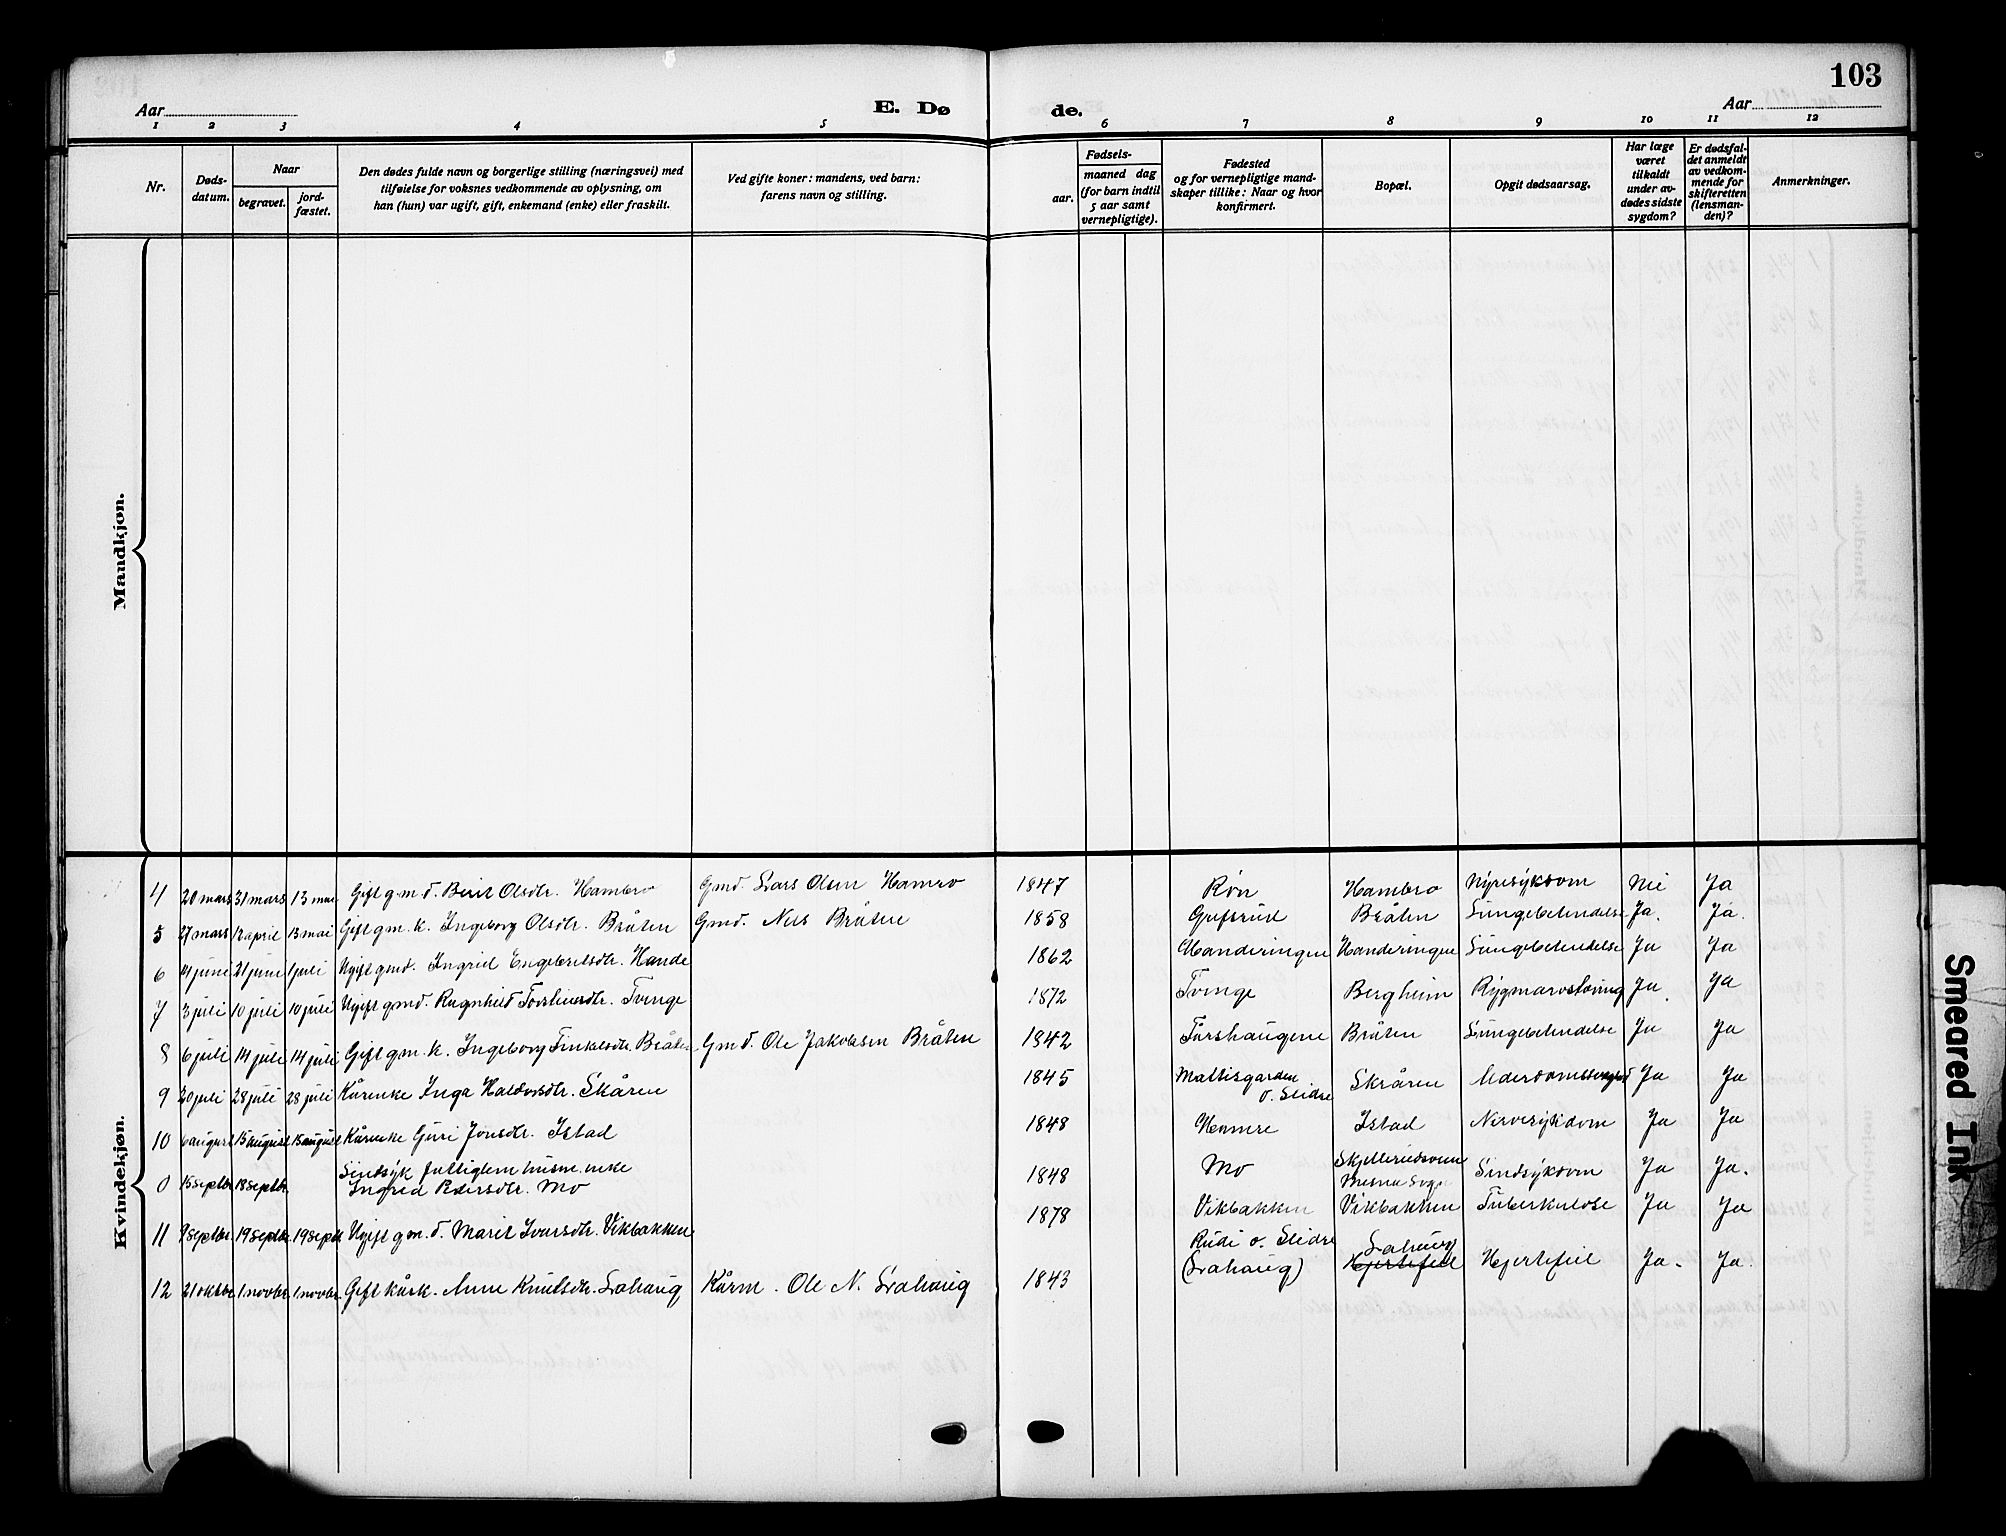 103
Aar
E. Dø
de.
Aar
1 2 3 4 5 6 7 8 9 10 11 12
Nr.
Døds-
datum.
Naar
begravet.
jord-
fæstet.
Den dødes fulde navn og borgerlige stilling (næringsvei) med
tilføielse for voksnes vedkommende av oplysning, om
han (hun) var ugift, gift, enkemand (enke) eller fraskilt.
Ved gifte koner: mandens, ved barn:
farens navn og stilling.
Fødsels-
aar.
maaned dag
(for barn indtil
5 aar samt
vernepligtige).
Fødested
og for vernepligtige mand-
skaper tillike: Naar og hvor
konfirmert.
Bopæl.
Opgit dødsaarsag.
Har læge
været
tilkaldt
under av-
dødes sidste
sygdom?
Er dødsfal-
det anmeldt
av vedkom-
mende for
skifteretten
(lensman-
den)?
Anmerkninger.
Mandkjøn.
Kvindekjøn.
4 20 mars 31 mars 13 mai Gift gm.d. Berit Olsdtr. Hambro Gmd. Lars Olsen Hamro 1847 Røn Hambro Nyresykdom Nei Ja
5 27 mars 12 april 13 mai Gift gm.k. Ingeborg Olsdtr. Bråten Gmd. Nils Bråten 1858 Bråten Lungebetendelse Ja. Ja.
6 14 juni 21 juni 1 juli Ugift gmd. Ingrid Engebretsdtr. Hande 1862 Handeringen Handeringen Lungebetendelse Ja Ja
7 3 juli 10 juli 10 juli Ugift gmd. Ragnhild Torsteinsdtr. Tvinge 1872 Tvinge Bergheim Rygmarvstæring Ja. Ja
8 6 juli 14 juli 14 juli Gift gm.k. Ingeborg Finkelsdtr. Bråten Gmd. Ole Jakobsen Bråten 1842 Førshaugene Bråten Lungebetendelse Ja Ja
9 20 juli 28 juli 28 juli Kårenke Inga Haldorsdtr. Skåren 1845 Mattisgarden
ø. Slidre Skråren Alderdomssvaghed Ja Ja
10 6 august 15 august 15 august Kårenke Guri Jonsdtr. Istad 1848 Hamre Istad Nervesykdom Ja Ja
0 15 septbr. 18 septbr. Sindsyk fattiglem husm. enke
Ingrid Pedersdtr. Mo 1848 Mo Sindsykdom Ja Ja.
11 9 septbr. 19 septbr. 19 septbr Ugift gm.d. Marit Ivarsdtr. Vikbakken 1878 Vikbakken Vikbakken Tuberkulose Ja Ja
12 21 oktbr 1. novbr. 1. novbr. Gift kårk. Anne Knutsdtr. Lahaug Kårm. Ole N. Lahaug 1843 Rudi ø. Slidre
(Lahaug) Lahaug
Hjertefeil Hjertefeil Ja. Ja.
Smeared Ink